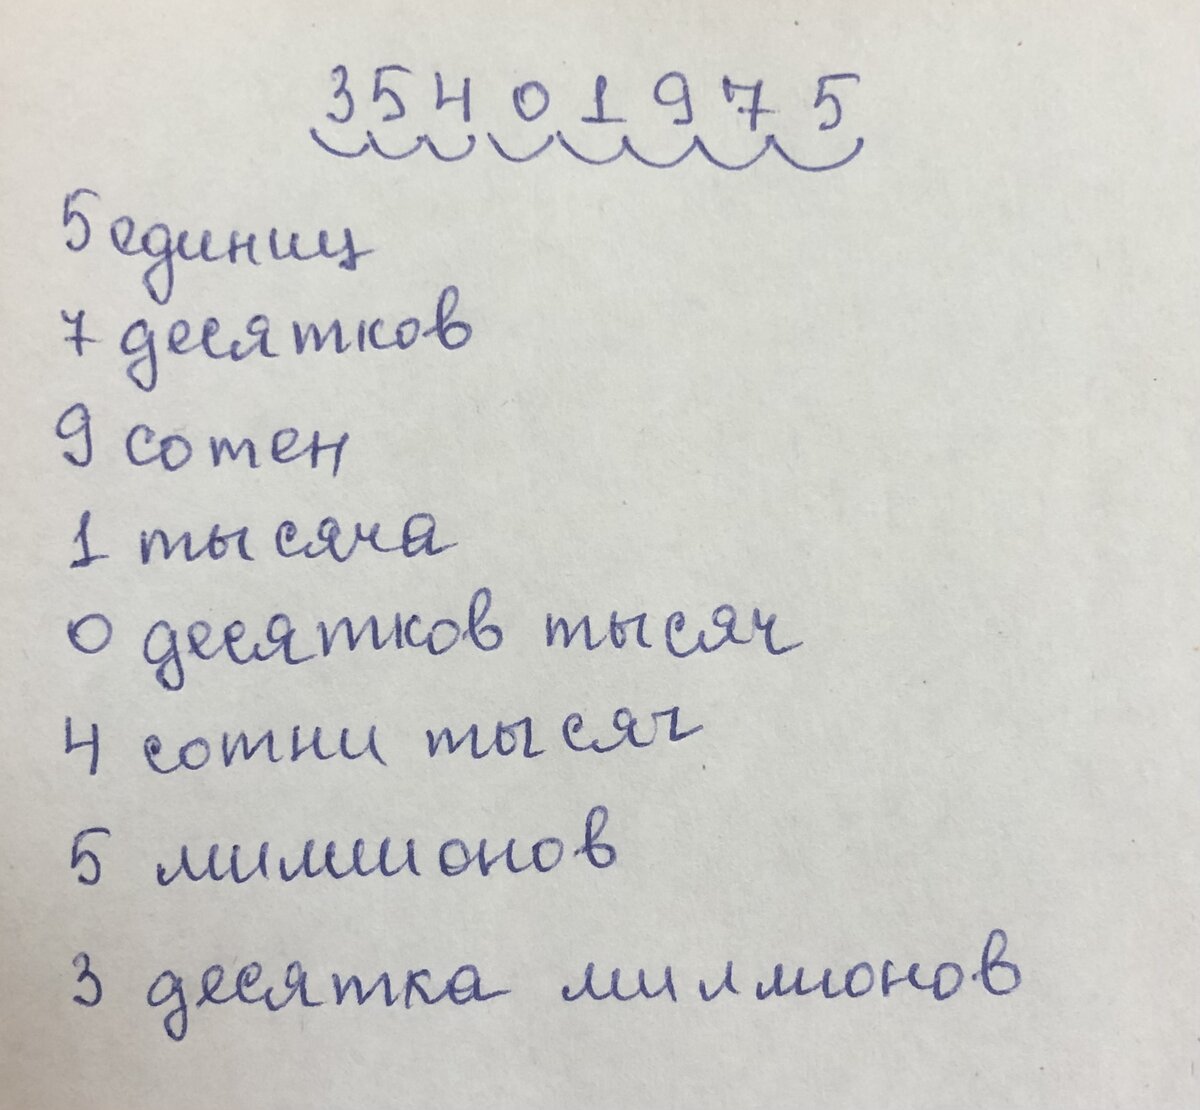 35401975
5 единиц
7 десятков
9 сотен
1 тысяча
0 десятков тысяч
4 сотни тысяч
5 миллионов
3 десятка миллионов